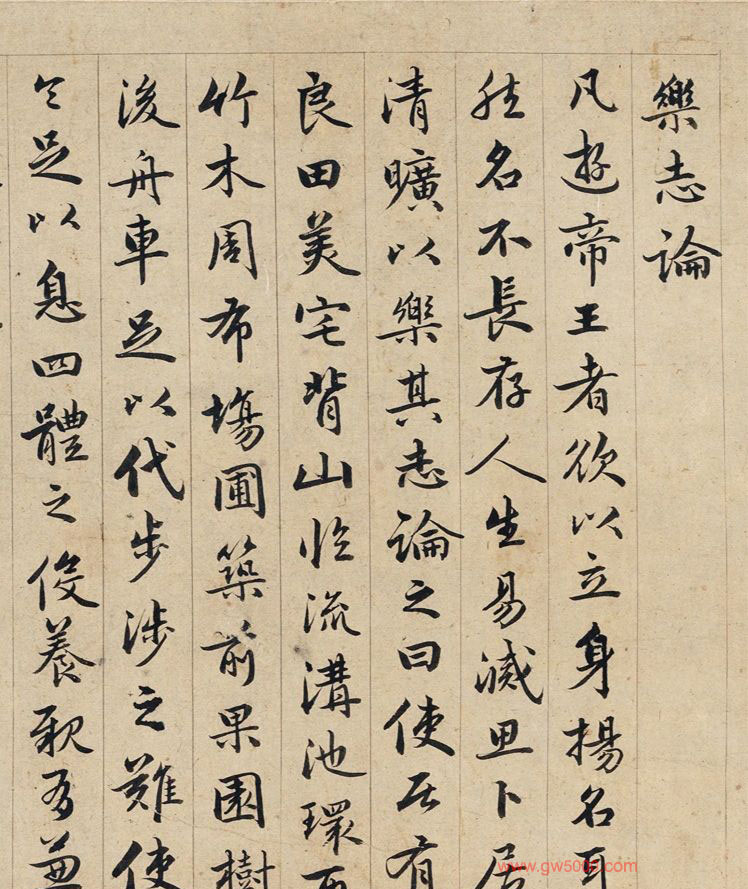 樂志論
凡遊帝王者欲以立身揚名耳
然名不長存人生易滅思卜居
清曠以樂其志論之曰使居有
良田美宅背山臨流溝池環匝
竹木周布場圃築前果園樹
後舟車足以代步涉之難使
令足以息四體之役養親有兼
www.gw500.com